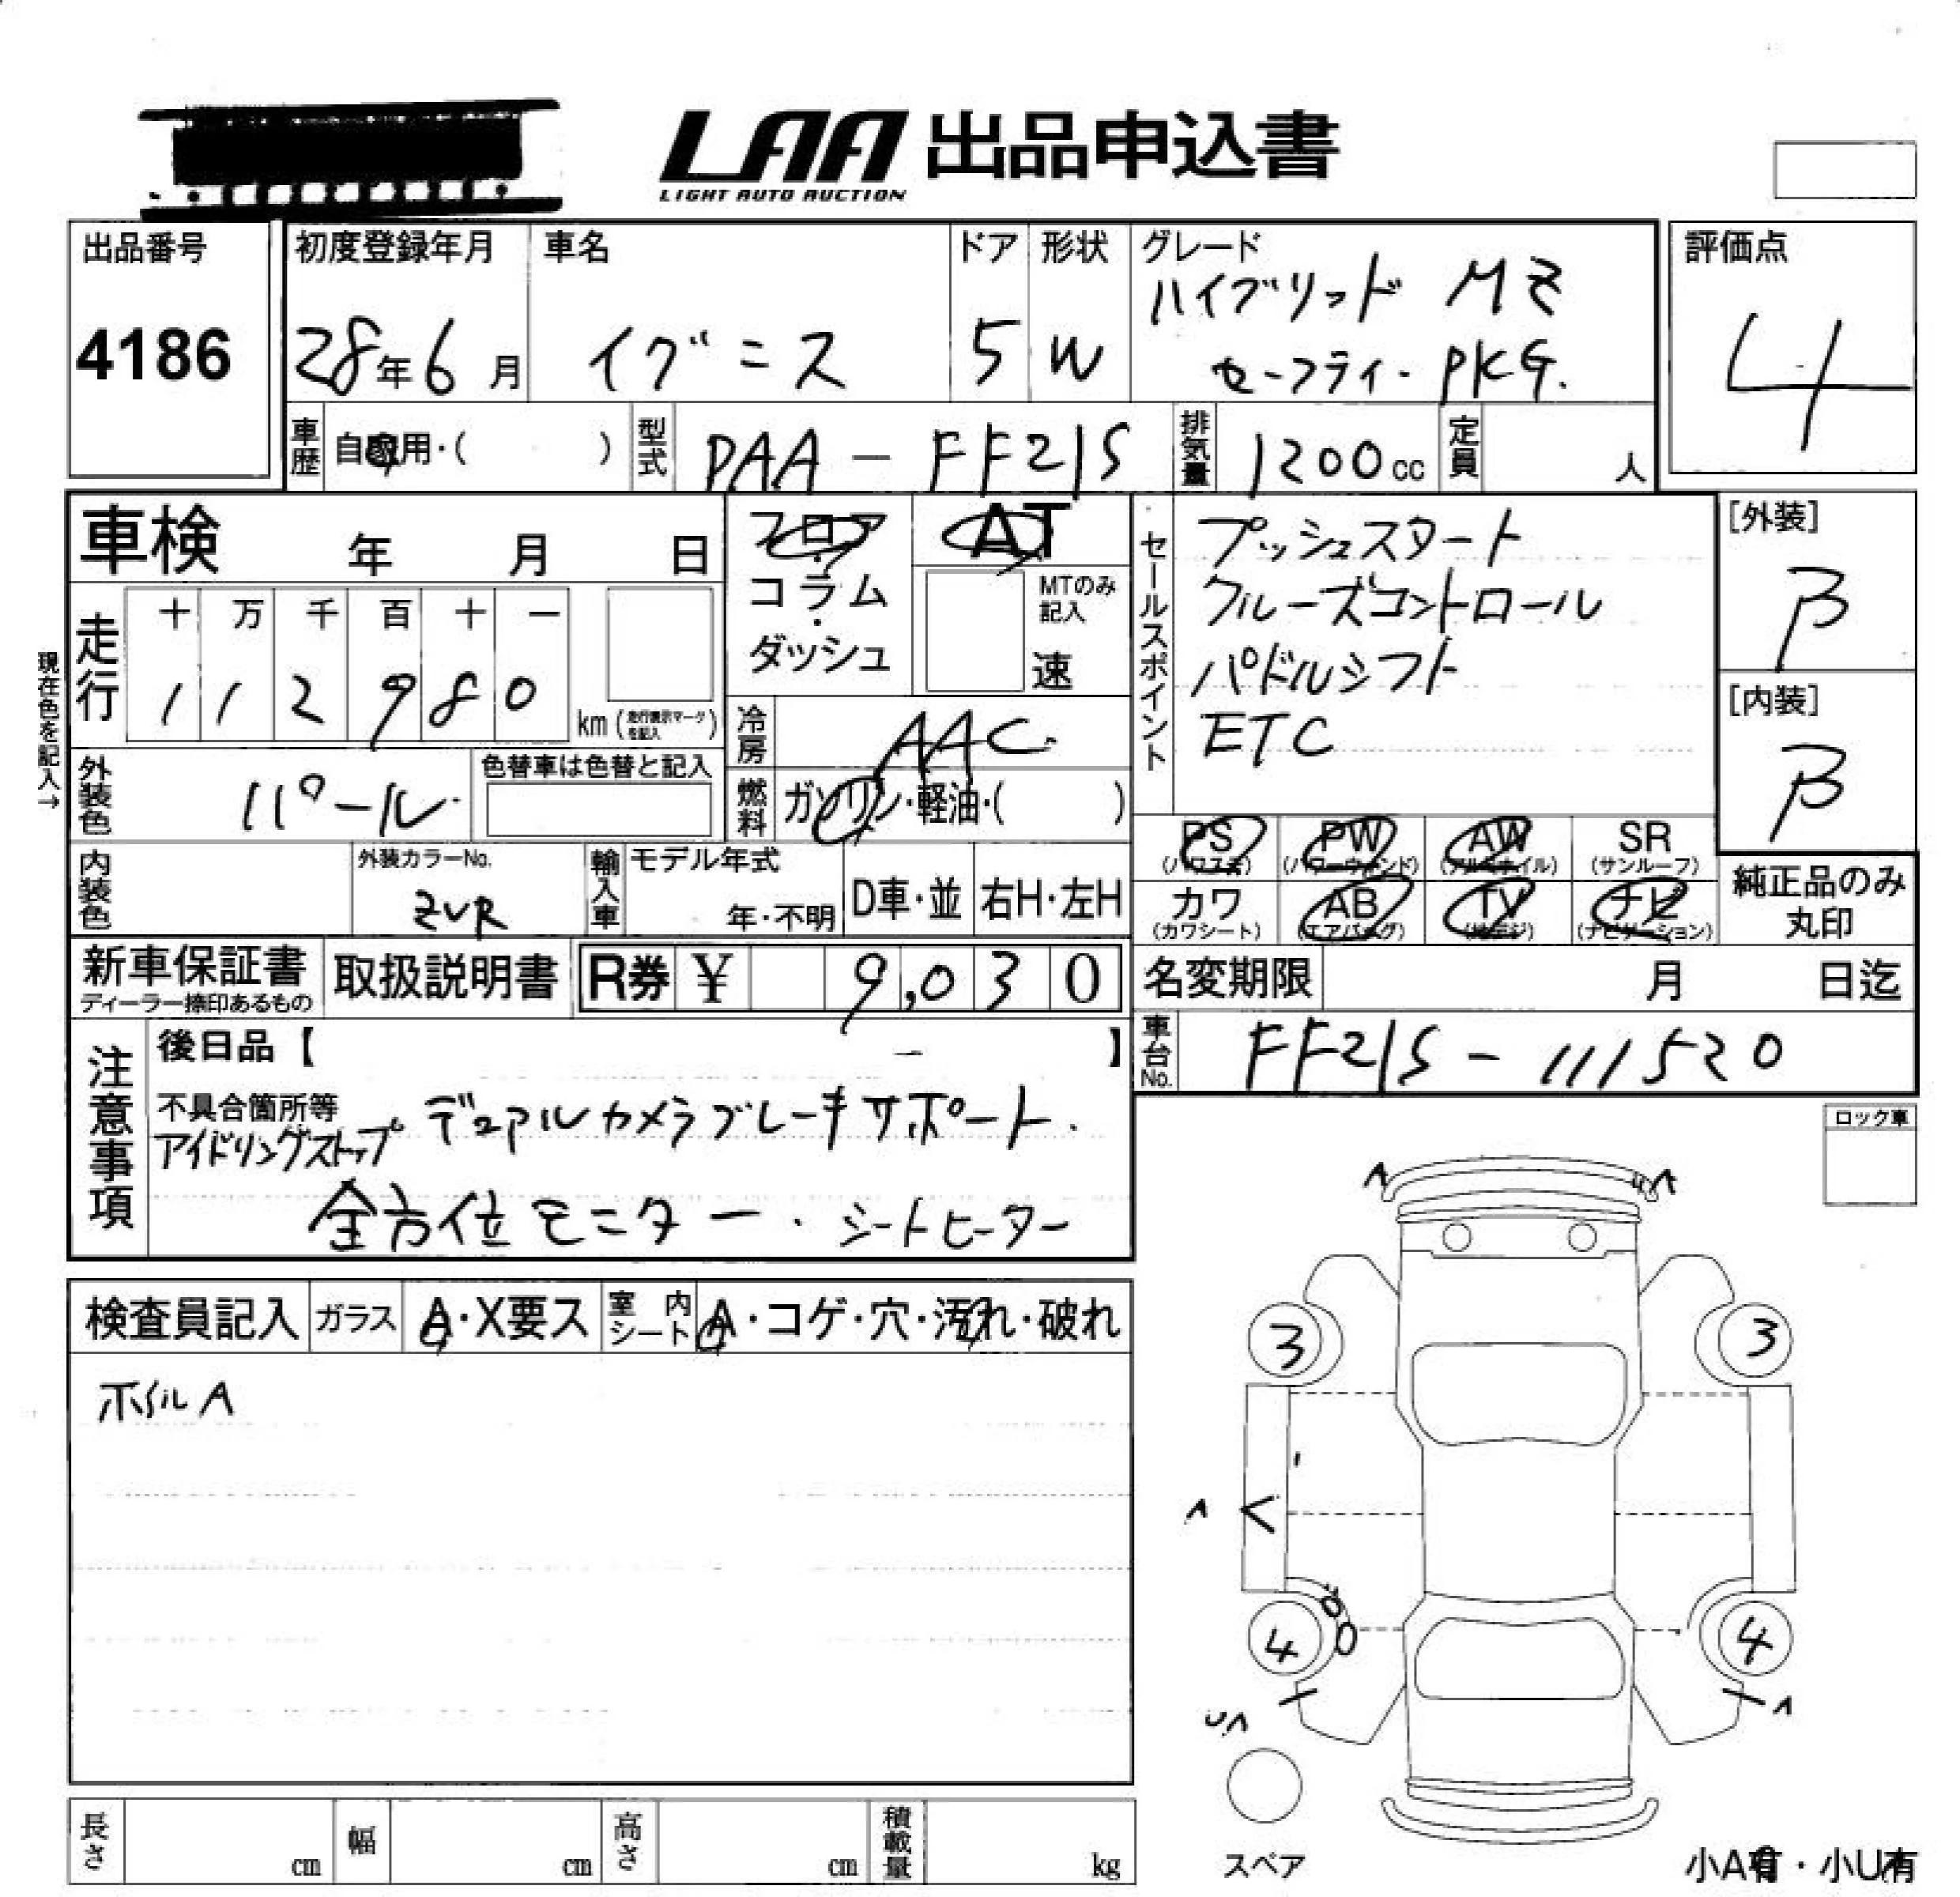 LAA 出品申込書
LIGHT AUTO AUCTION
出品番号
4186
初度登録年月
28年6月
車名
イグニス
ドア
5
形状
W
グレード
ハイブリッド MZ
セーフティー PKG.
評価点
4
車歴
自家用・( )
型式
DAA - FF21S
排気量
1200cc
定員
人
車検 年 月 日
フロア・コラム・ダッシュ
AT
MTのみ記入
速
セールスポイント
プッシュスタート
クルーズコントロール
パドルシフト
ETC
[外装]
B
[内装]
B
現在色を記入→
走行
十 万 千 百 十 一
1 1 2 9 8 0
km (走行表示マークを記入)
冷房
AAC
外装色
パール
色替車は色替と記入
燃料
ガソリン・軽油・( )
PS (パワステ)
PW (パワーウィンド)
AW (アルミホイル)
SR (サンルーフ)
カワ (カワシート)
AB (エアバッグ)
TV (地デジ)
ナビ (ナビゲーション)
純正品のみ丸印
内装色
外装カラーNo.
ZVR
輸入車
モデル年式
年・不明
D車・並
右H・左H
新車保証書
ディーラー捺印あるもの
取扱説明書
R券 ¥ 9,030
名変期限 月 日迄
車台No.
FF21S - 111520
注意事項
後日品【 】
不具合箇所等
デュアルカメラブレーキサポート.
アイドリングストップ
全方位モニター・シートヒーター
ロック車
検査員記入
ガラス
A・X要ス
室内シート
A・コゲ・穴・汚れ・破れ
ホイルA
A
A
3
3
A
4
4
UA
A
スペア
長さ cm
幅 cm
高さ cm
積載量 kg
小A有・小U有